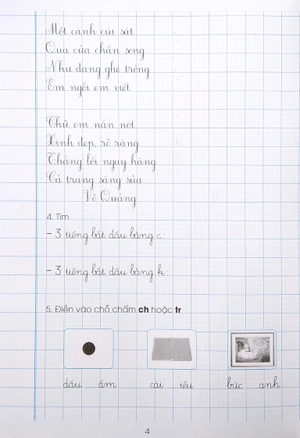 Một cành cúi sát
Qua cửa chấn song
Như đang ghé trông
Em ngồi em viết
Chữ em nắn nót
Xinh đẹp, rõ ràng
Thẳng lối ngay hàng
Cả trang sáng sủa
Võ Quảng
4. Tìm
- 3 tiếng bắt đầu bằng c:
- 3 tiếng bắt đầu bằng k:
5. Điền vào chỗ chấm ch hoặc tr
dấu ấm
cái iếu
bức anh
4